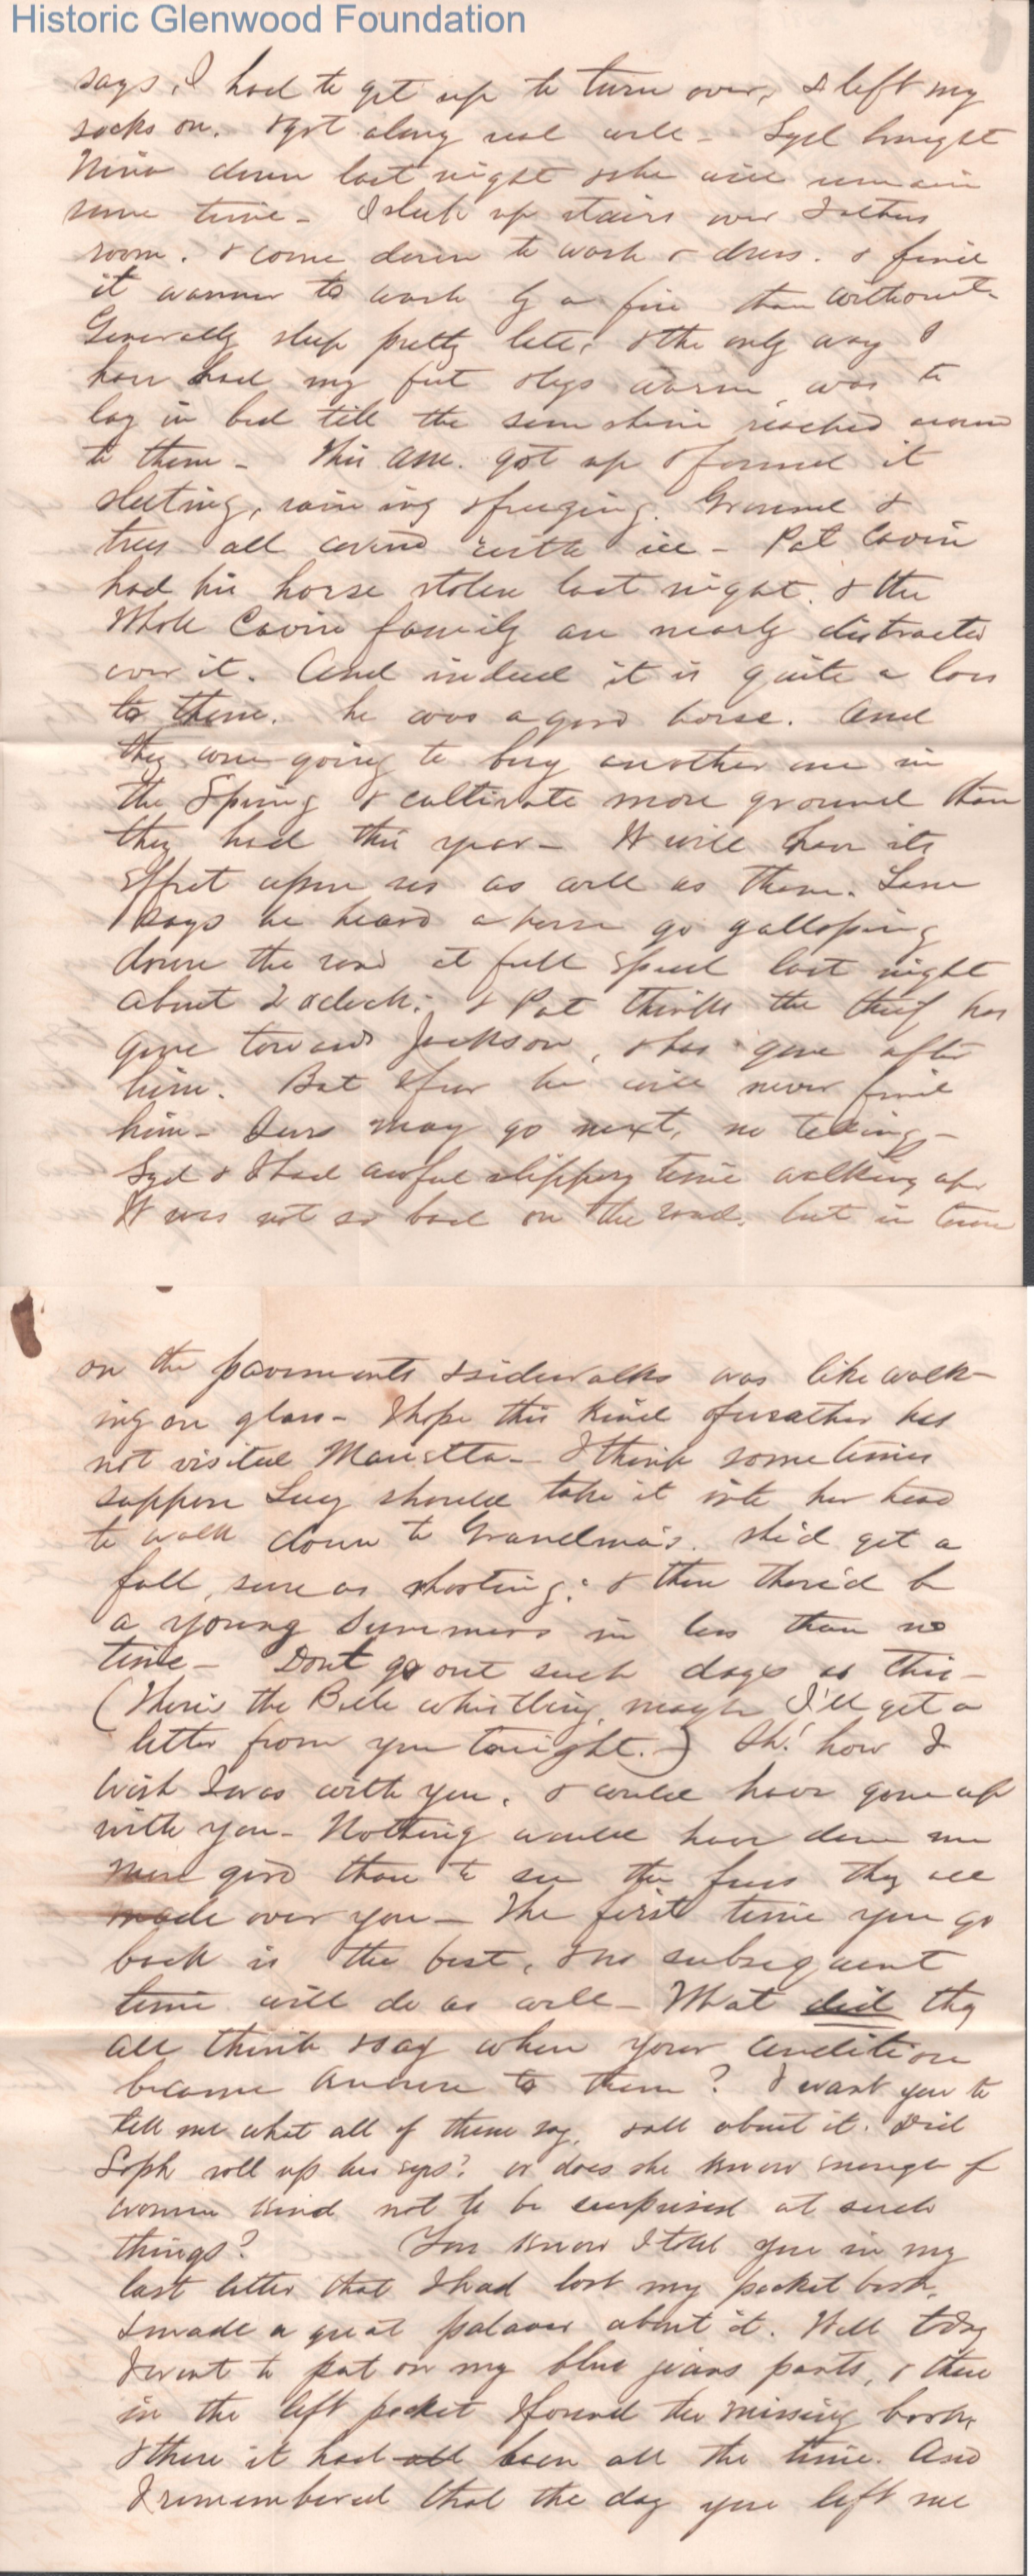 Historic Glenwood Foundation
says, I had to get up to turn over, & left my
socks on. & got along real well - Syd brought
Nina down last night & she will remain
some time - I sleep up stairs over Fathers
room. & come down to wash & dress. & find
it warmer to wash by a fire than without -
Generally sleep pretty late, & the only way I
have had my feet & legs warm, was to
lay in bed till the sun shine reached around
to them - This am. got up & found it
sleeting, raining & freezing. Ground &
trees all covered with ice - Pat Cavin
had his horse stolen last night. & the
Whole Cavin family are nearly distracted
over it. And indeed it is quite a loss
to them. he was a good horse. And
they were going to buy another one in
the Spring & cultivate more ground than
they had this year - It will have its
effect upon us as well as them.
says he heard a horse go galloping
down the road at full speed last night
about 2 oclock. & Pat thinks the thief has
gone towards Jackson, & has gone after
him. But I fear he will never find
him - Ours may go next, no telling -
Syd & I had awful slippery time walking up
It was not so bad on the road. but in town
on the pavements & sidewalks was like walk-
ing on glass - I hope this kind of weather has
not visited Marietta - I think sometimes
suppose Lucy should take it into her head
to walk down to Grandma's. she'd get a
fall, sure as shooting; & then there'd be
a young Summers in less than no
time - Dont go out such days as this -
(There's the Belle whistling, maybe I'll get a
letter from you tonight.) Oh! how I
wish I was with you. & could have gone up
with you - Nothing would have done me
more good than to see the fuss they all
made over you - The first time you go
back is the best, & no subsequent
time will do as well - What did they
all think & say when your condition
became known to them? I want you to
tell me what all of them say, & all about it. Did
Soph roll up her eyes? or does she know enough of
women kind not to be surprised at such
things? You know I told you in my
last letter that I had lost my pocket book,
& made a great palaver about it. Well today
I went to put on my blue jeans pants, & there
in the left pocket I found the missing book,
& there it had all been all the time. And
I remembered that the day you left me